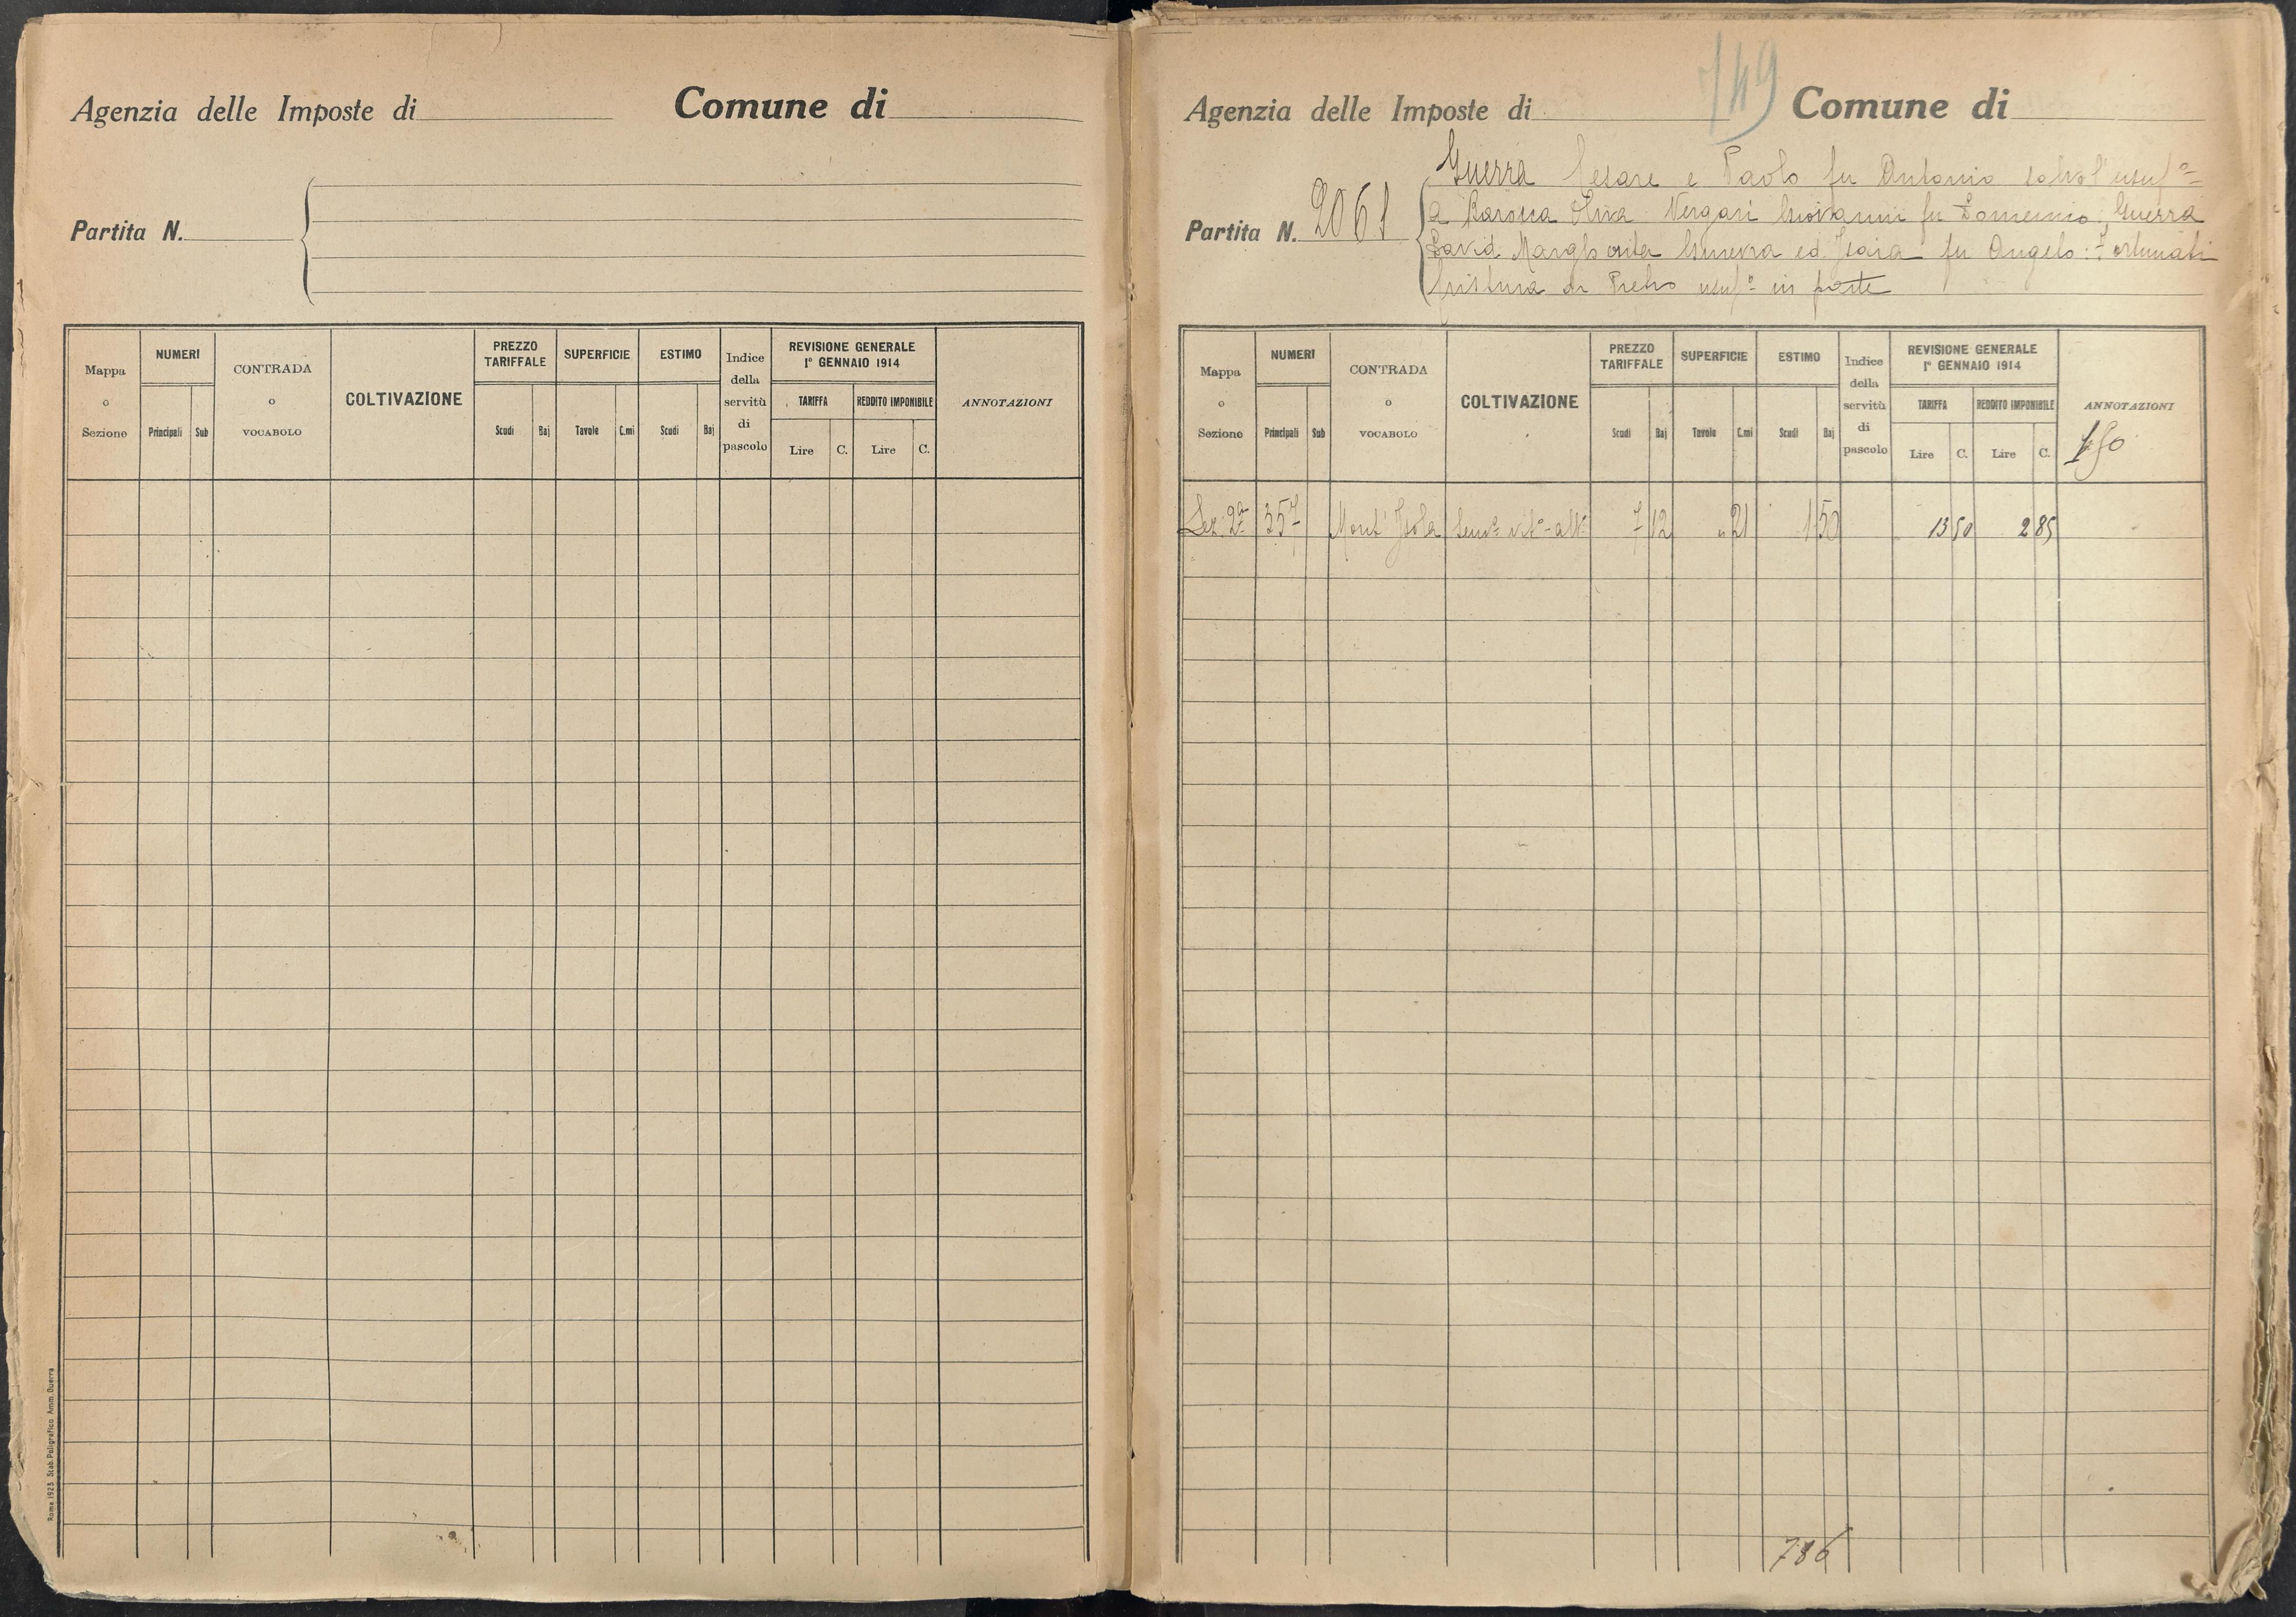 Agenzia delle Imposte di Comune di
Partita N.
Mappa o Sezione
NUMERI
Principali Sub
CONTRADA o VOCABOLO
COLTIVAZIONE
PREZZO TARIFFALE
Scudi Baj
SUPERFICIE
Tavole C.mi
ESTIMO
Scudi Baj
Indice della servitù di pascolo
REVISIONE GENERALE
1° GENNAIO 1914
TARIFFA REDDITO IMPONIBILE
Lire C. Lire C.
ANNOTAZIONI
Roma 1923 Stab. Poligrafico Amm. Guerra
749
Agenzia delle Imposte di Comune di
Guerra Cesare e Paolo fu Antonio salvo l'usuf°
Partita N. 2061
a Barona Oliva: Vergari Giovanni fu Domenico; Guerra
David Margherita Ginevra ed Isaia fu Angelo: Fortunati
Cristina di Pietro usuf° in parte
Mappa o Sezione
NUMERI
Principali Sub
CONTRADA o VOCABOLO
COLTIVAZIONE
PREZZO TARIFFALE
Scudi Baj
SUPERFICIE
Tavole C.mi
ESTIMO
Scudi Baj
Indice della servitù di pascolo
REVISIONE GENERALE
1° GENNAIO 1914
TARIFFA REDDITO IMPONIBILE
Lire C. Lire C.
ANNOTAZIONI
Sez. 2ª 357 Mont' Isola Sem° vit° alb° 7 12 " 21 1 50 13 50 2 85
786